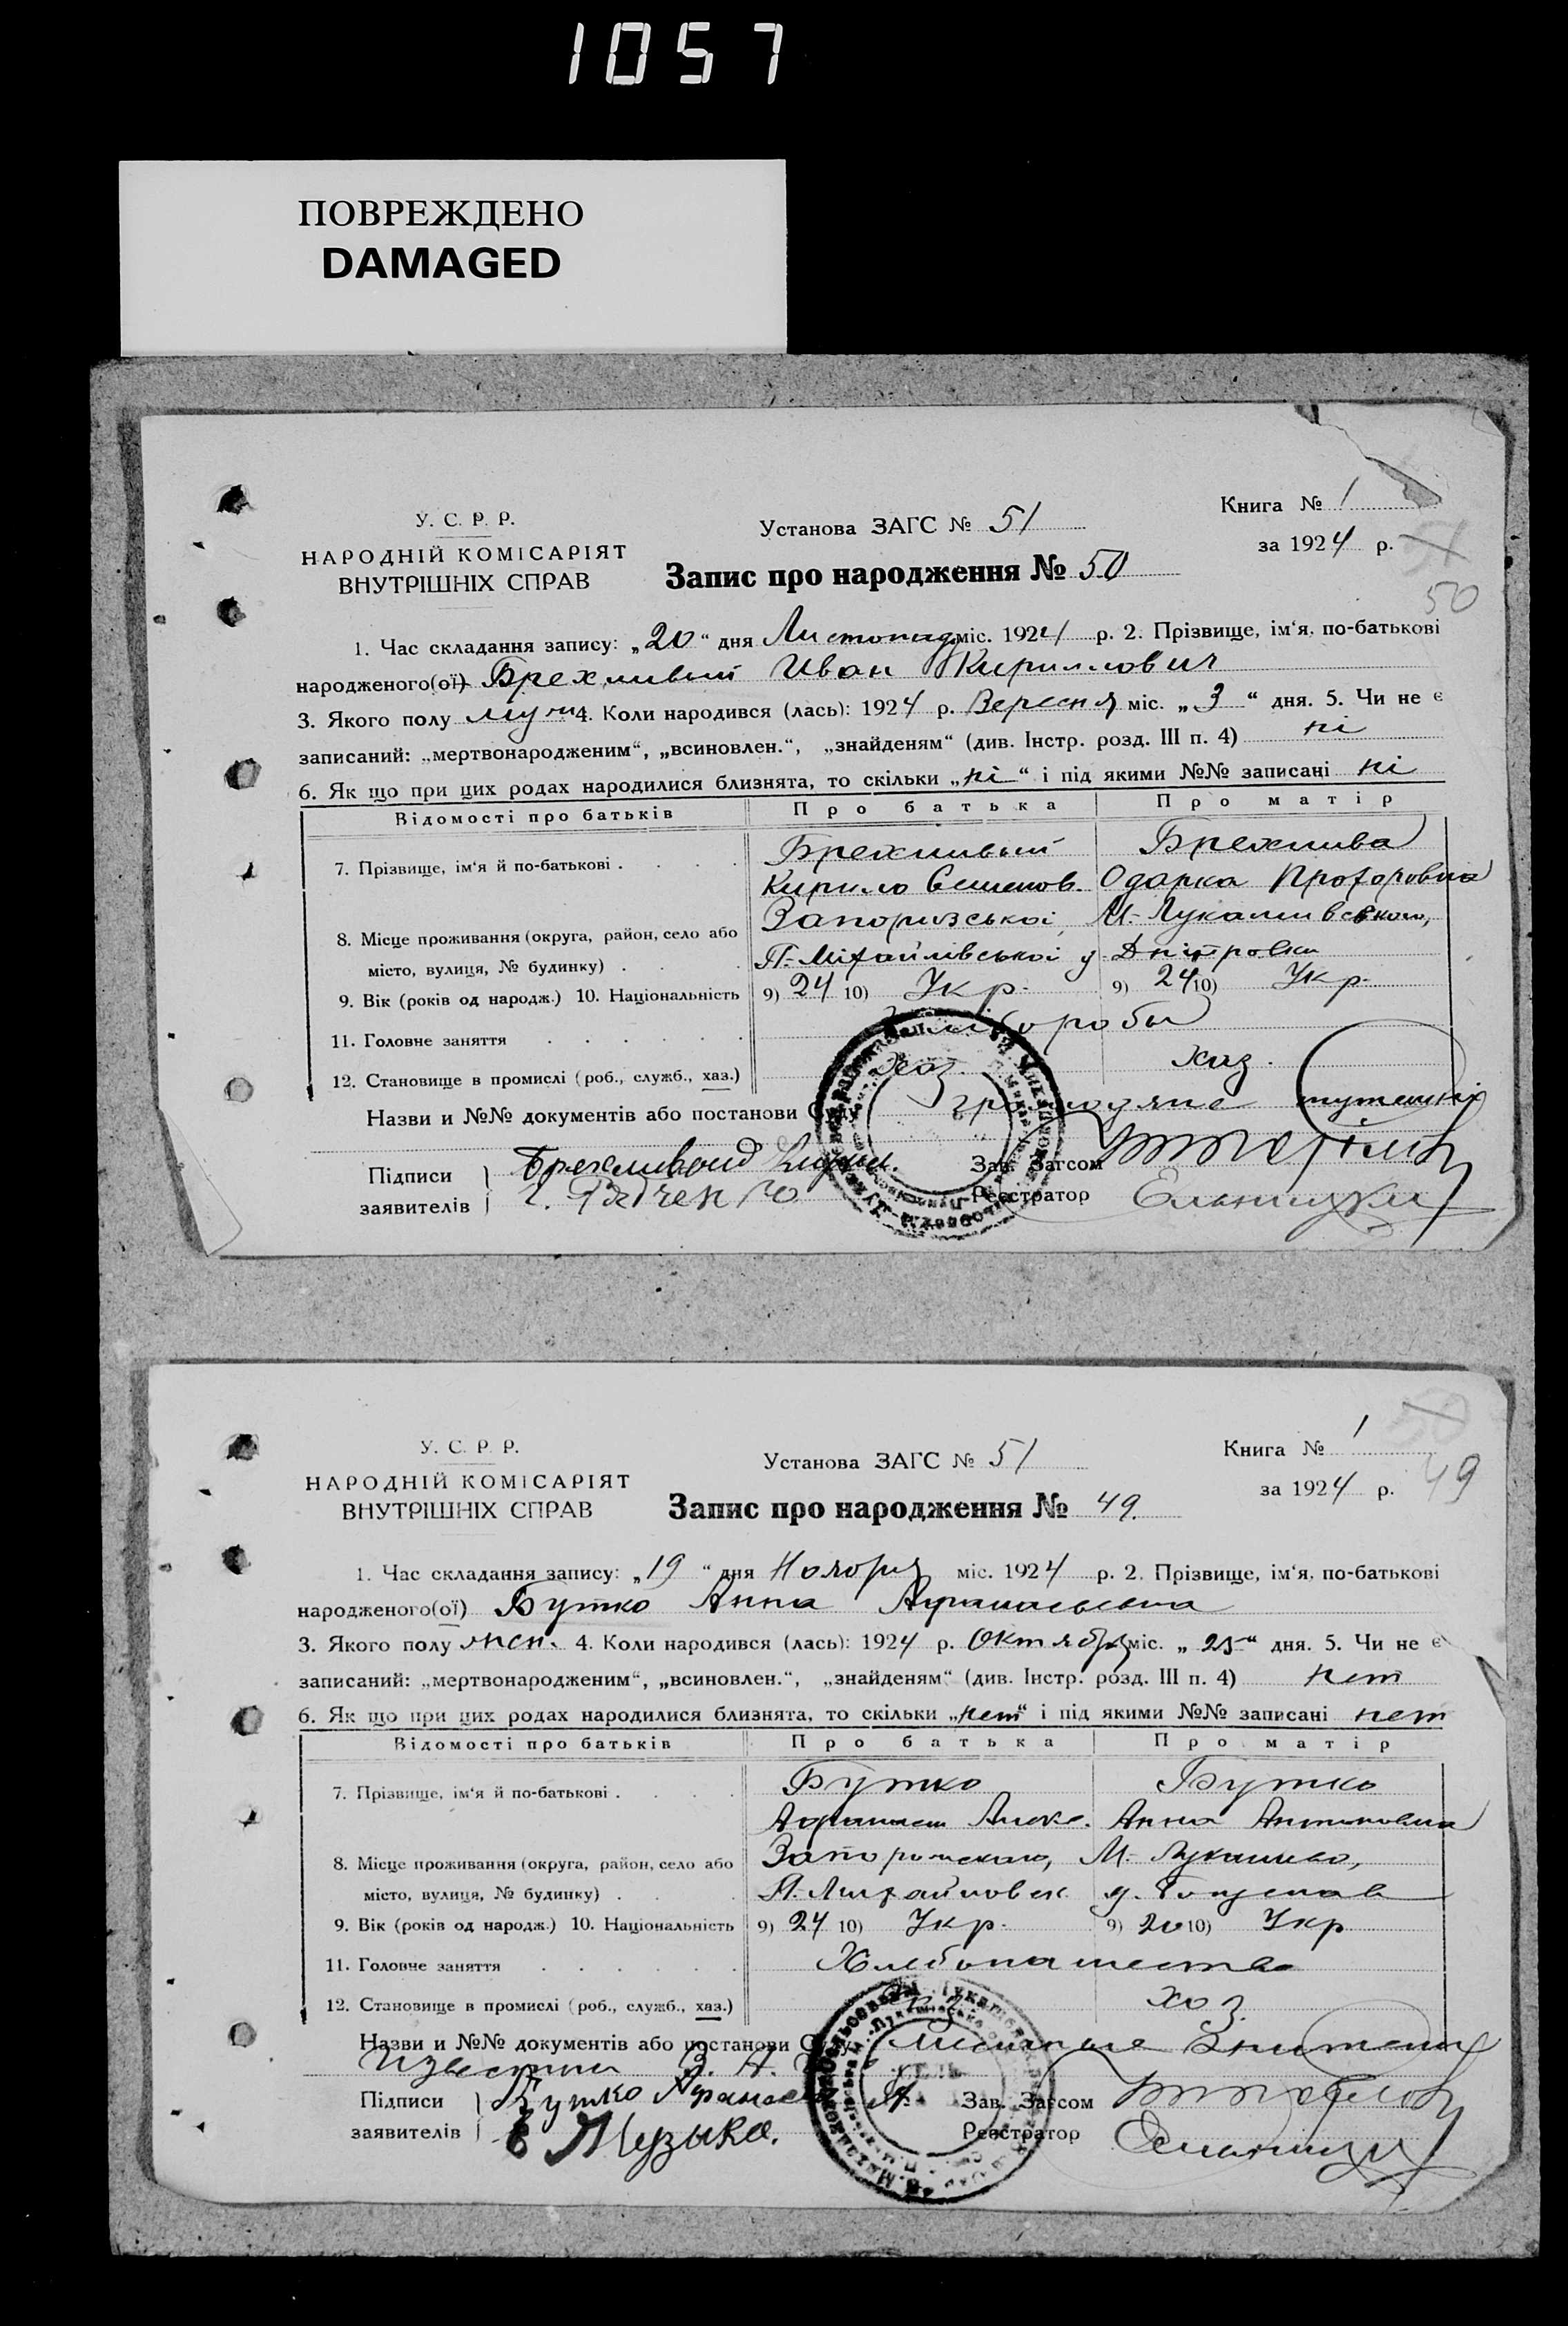 1057
ПОВРЕЖДЕНО
DAMAGED
У. С. Р. Р.
НАРОДНІЙ КОМІСАРІЯТ
ВНУТРІШНІХ СПРАВ
Установа ЗАГС № 51
Книга № 1
за 1924 р.
Запис про народження № 50
50
1. Час складання запису: „20“ дня Листопад міс. 1924 р. 2. Прізвище, ім‘я, по-батькові
народженого(ої) Брехливый Иван Кириллович
3. Якого полу муж 4. Коли народився (лась): 1924 р. Вересня міс. „3“ дня. 5. Чи не є
записаний: „мертвонародженим“, „всиновлен.“, „знайденям“ (див. Інстр. розд. III п. 4) ні
6. Як що при цих родах народилися близнята, то скільки „ні“ і під якими №№ записані ні
Відомості про батьків Про батька Про матір
7. Прізвище, ім‘я й по-батькові . . . . Брехливый Брехлива
Кирило Семенов. Одарка Прохоровна
8. Місце проживання (округа, район, село або Запоризської М-Лукашивського,
місто, вулиця, № будинку) . . П.-Міхайлівської у Дніпровка
9. Вік (років од народж.) 10. Національність 9) 24 10) Укр. 9) 24 10) Укр.
11. Головне заняття . . . . . . Хлібороби
12. Становище в промислі (роб., служб., хаз.) хаз. хаз.
Назви и №№ документів або постанови Суду громодяне тутешні
Підписи Брехливый Зав. Загсом
заявителів Реєстратор Ельницки
У. С. Р. Р.
НАРОДНІЙ КОМІСАРІЯТ
ВНУТРІШНІХ СПРАВ
Установа ЗАГС № 51
Книга № 1
за 1924 р.
49
Запис про народження № 49.
1. Час складання запису: „19“ дня Ноября міс. 1924 р. 2. Прізвище, ім‘я, по-батькові
народженого(ої) Бутко Анна Афанасьевна
3. Якого полу жен. 4. Коли народився (лась): 1924 р. Октября міс. „25“ дня. 5. Чи не є
записаний: „мертвонародженим“, „всиновлен.“, „знайденям“ (див. Інстр. розд. III п. 4) нет
6. Як що при цих родах народилися близнята, то скільки „нет“ і під якими №№ записані нет
Відомості про батьків Про батька Про матір
7. Прізвище, ім‘я й по-батькові . . . . Бутко Бутко
Афанасий Алекс. Анна Антоновна
8. Місце проживання (округа, район, село або Запорожского, М-Лукашево,
місто, вулиця, № будинку) . . П.-Михайловск. д.
9. Вік (років од народж.) 10. Національність 9) 24 10) Укр. 9) 20 10) Укр
11. Головне заняття . . . . . . Хлебопашество
12. Становище в промислі (роб., служб., хаз.) хоз.
Назви и №№ документів або постанови Суду
Підписи Бутко Афанасий Зав. Загсом
заявителів Музыка. Реєстратор